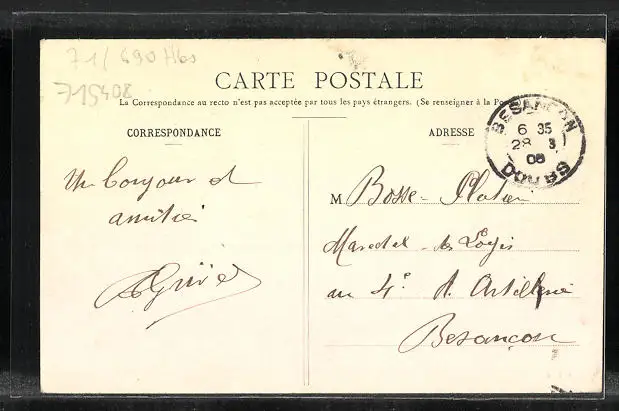 71/690 Hbs
715408
CARTE POSTALE
La Correspondance au recto n'est pas acceptée par tous les pays étrangers. (Se renseigner à la Po
CORRESPONDANCE
ADRESSE
BESANCON
6 35
28 3
08
DOUBS
Un bonjour et
amitiés
M Bosse-
Marechal-des Logis
au 4e d'Artillerie
Besançon